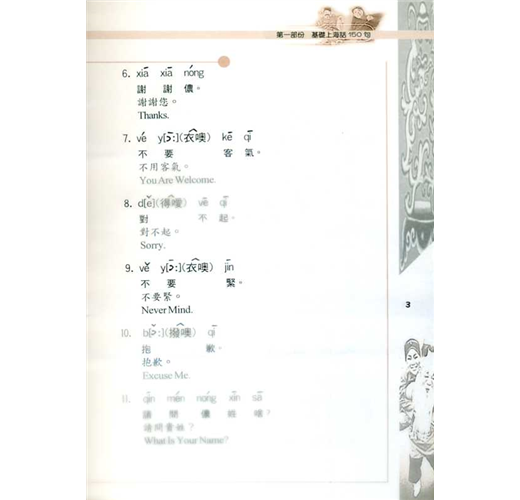 第一部份 基礎上海話 150 句
6. xiā xiā nóng
謝 謝 儂。
謝謝您。
Thanks.
7. vé y[ɔ̄:](衣噢) kē qī
不 要 客 氣。
不用客氣。
You Are Welcome.
8. d[ě](得噯) vē qī
對 不 起。
對不起。
Sorry.
9. vě y[ɔ̄:](衣噢) jīn
不 要 緊。
不要緊。
Never Mind.
10. b[ɔ̌:](撥噢) qī
抱 歉。
抱歉。
Excuse Me.
11. qǐn mén nóng xīn sā
請 問 儂 姓 啥？
請問貴姓？
What Is Your Name?
3